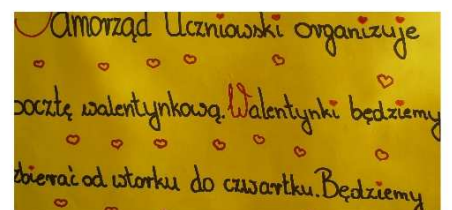 Samorząd Uczniowski organizuje
pocztę walentynkową. Walentynki będziemy
zbierać od wtorku do czwartku. Będziemy